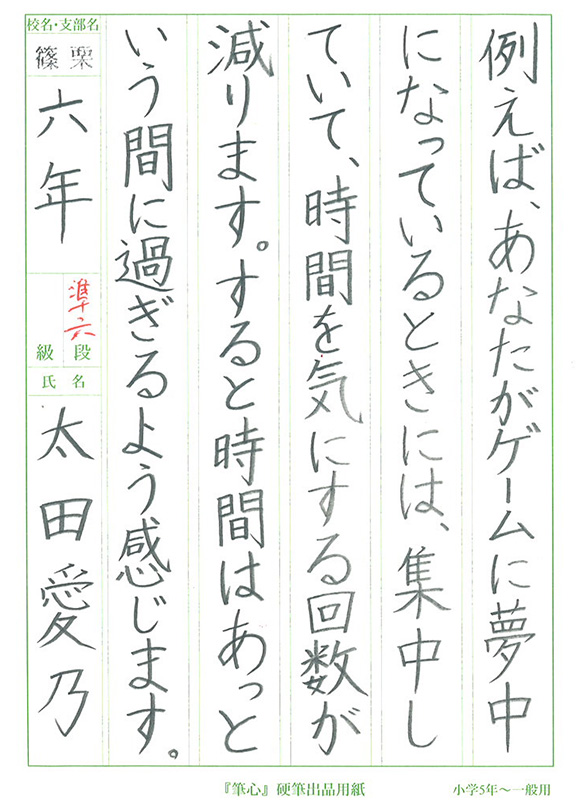 例えば、あなたがゲームに夢中
になっているときには、集中し
ていて、時間を気にする回数が
減ります。すると時間はあっと
いう間に過ぎるよう感じます。
校名・支部名
篠栗
六年
準六
級 段
氏名
太田愛乃
『筆心』硬筆出品用紙
小学5年〜一般用